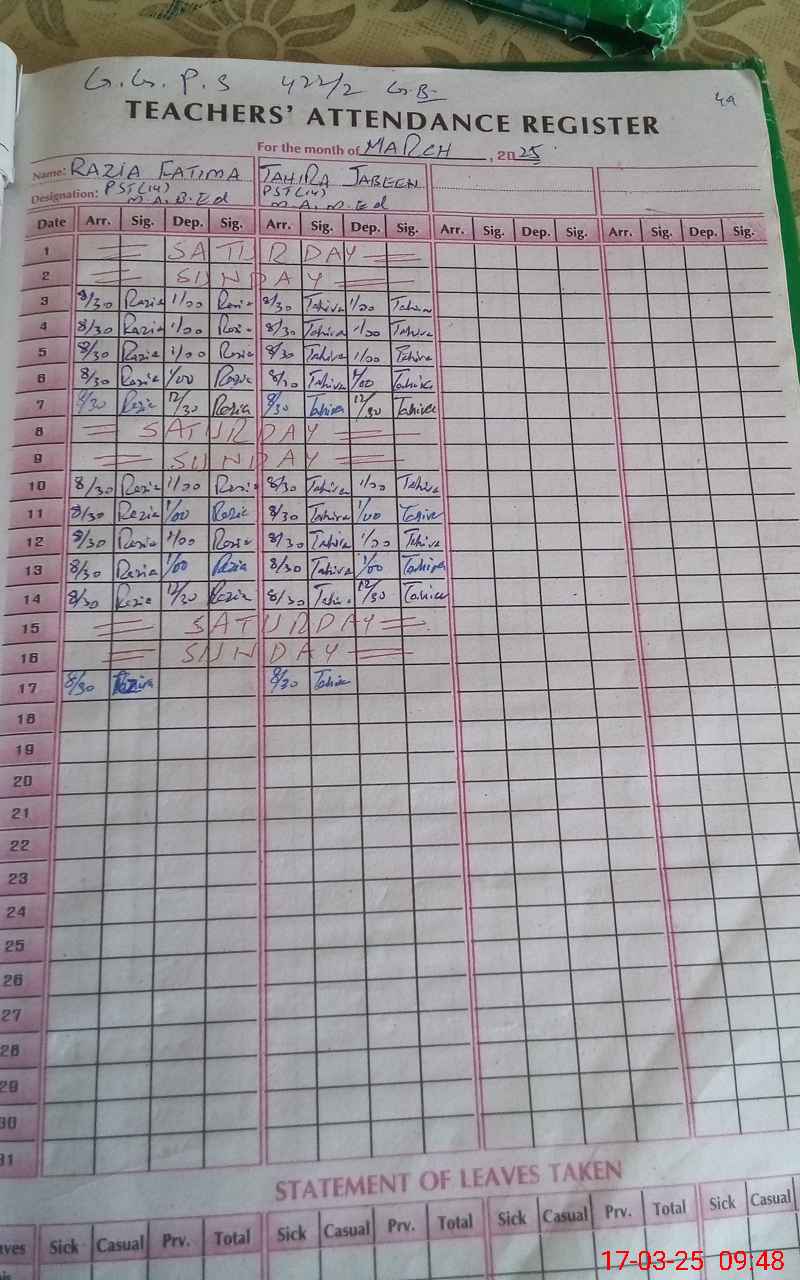 G.G.P.S 422/2 G.B
49
TEACHERS' ATTENDANCE REGISTER
For the month of MARCH, 2025
Name: RAZIA FATIMA TAHIRA JABEEN
Designation: PST(14) PST(14)
M.A.B.Ed M.A.M.Ed
Date Arr. Sig. Dep. Sig. Arr. Sig. Dep. Sig. Arr. Sig. Dep. Sig. Arr. Sig. Dep. Sig.
1 SATURDAY
2 SUNDAY
3 8/30 Razia 1/00 Razia 8/30 Tahira 1/00 Tahira
4 8/30 Razia 1/00 Razia 8/30 Tahira 1/00 Tahira
5 8/30 Razia 1/00 Razia 8/30 Tahira 1/00 Tahira
6 8/30 Razia 1/00 Razia 8/30 Tahira 1/00 Tahira
7 8/30 Razia 12/30 Razia 8/30 Tahira 12/30 Tahira
8 SATURDAY
9 SUNDAY
10 8/30 Razia 1/00 Razia 8/30 Tahira 1/00 Tahira
11 8/30 Razia 1/00 Razia 8/30 Tahira 1/00 Tahira
12 8/30 Razia 1/00 Razia 8/30 Tahira 1/00 Tahira
13 8/30 Razia 1/00 Razia 8/30 Tahira 1/00 Tahira
14 8/30 Razia 12/30 Razia 8/30 Tahira 12/30 Tahira
15 SATURDAY
16 SUNDAY
17 8/30 Razia 8/30 Tahira
18
19
20
21
22
23
24
25
26
27
28
29
30
31
STATEMENT OF LEAVES TAKEN
Sick Casual Prv. Total Sick Casual Prv. Total Sick Casual Prv. Total Sick Casual
17-03-25 09:48